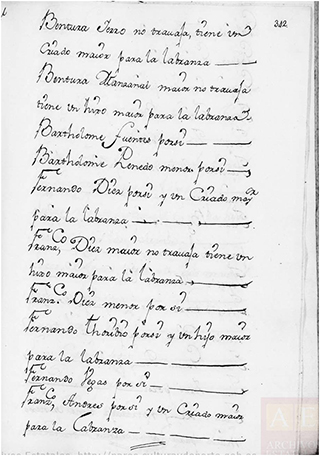 342
Bentura Ferro no travaja, tiene un
Criado maior para la labranza
Bentura Manzanal maior no travaja
tiene un hijo maior para la labranza
Bartholome Fuentes por sí
Bartholome Penedo menor por sí
Fernando Diez por sí y un Criado mayr
para la labranza
Franco, Diez maior no travaja tiene un
hijo maior para la labranza
Franco, Diez menor por sí
Fernando Thoribio por sí y un hijo maior
para la labranza
Fernando Vegas por sí
Franco, Andres por sí y un Criado maior
para la Labranza